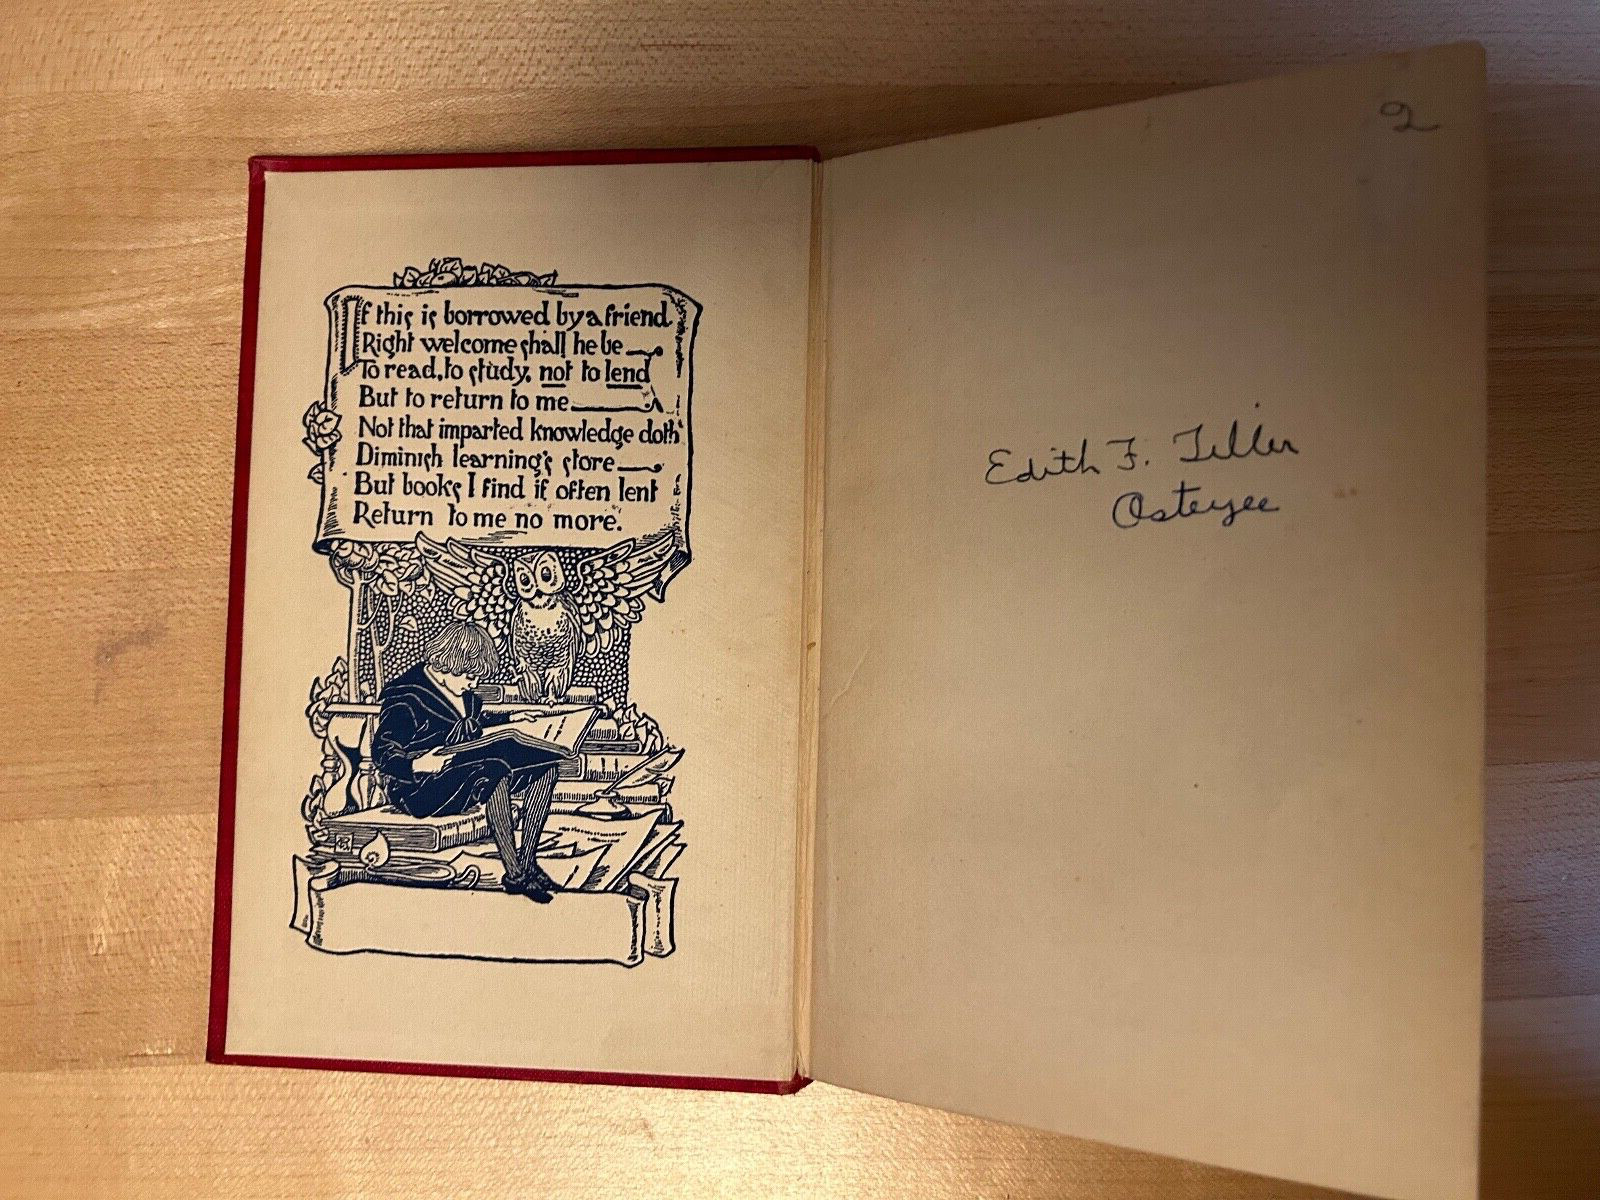 If this is borrowed by a friend
Right welcome shall he be
To read, to study, not to lend
But to return to me
Not that imparted knowledge doth
Diminish learning's store
But books I find if often lent
Return to me no more.
2
Edith F. Teller
Osteyee